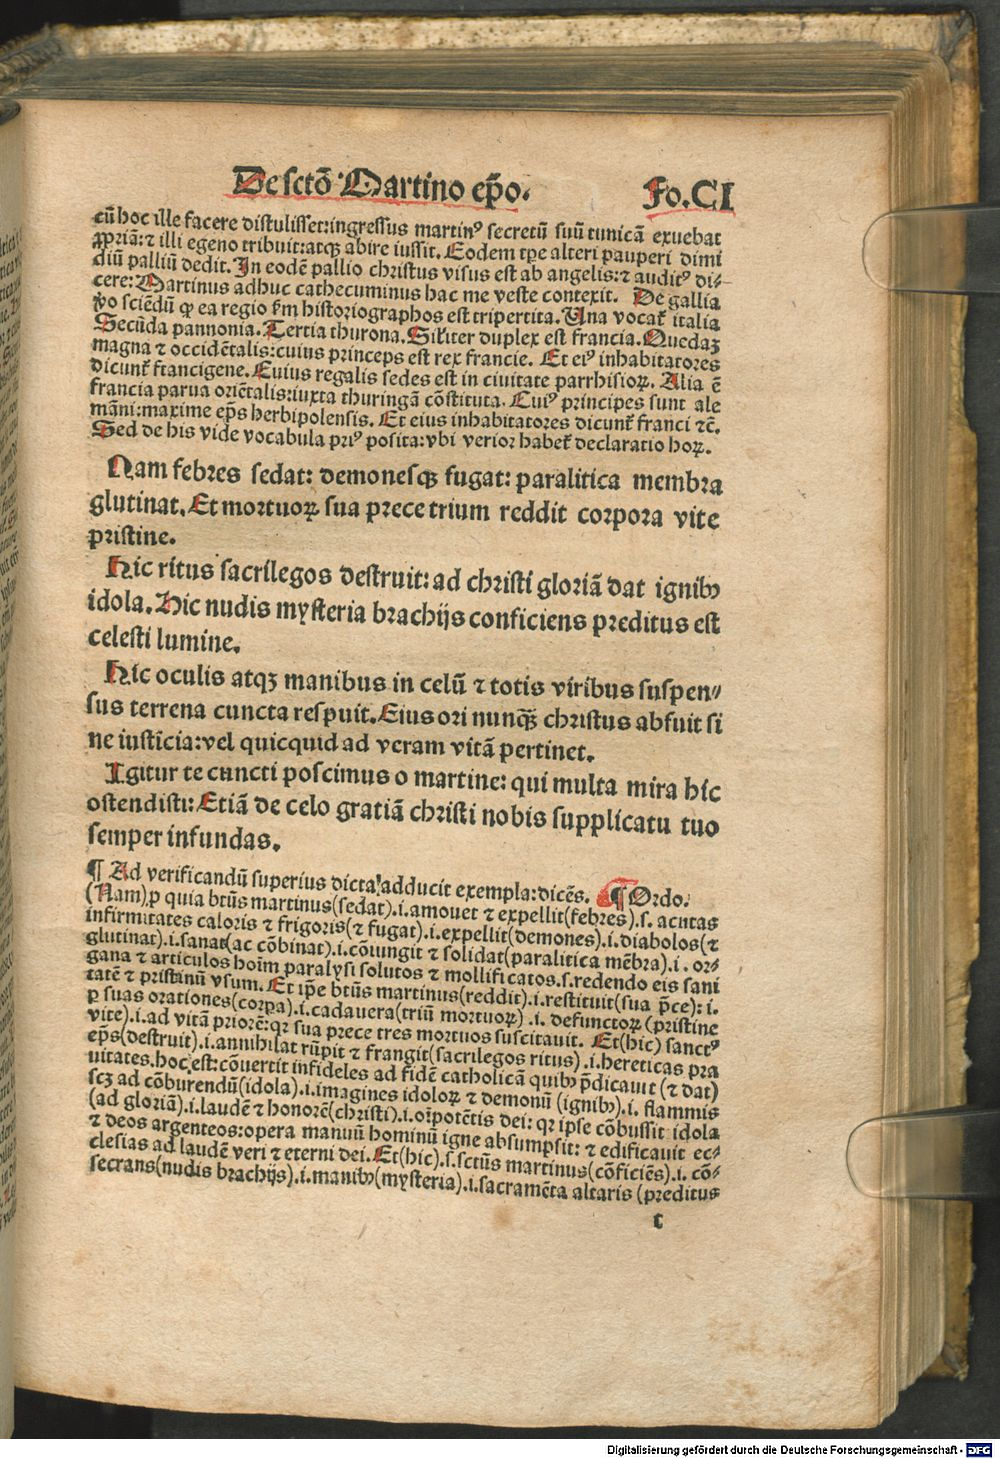 De sctō Martino ep̄o.
Fo.CI
cū hoc ille facere distulisset:ingressus martinꝰ secretū suū tunicā exuebat
ꝓpriā:⁊ illi egeno tribuit:atqꝫ abire iussit. Eodem tp̄e alteri pauperi dimi
diū palliū dedit. In eodē pallio christus visus est ab angelis:⁊ auditꝰ di-
cere: Martinus adhuc cathecuminus hac me veste contexit. De gallia
ꝟo sciēdū ꝙ ea regio ẜm historiographos est tripertita. Una vocat̄ italia
Secūda pannonia. Tertia thurona. Sil̄iter duplex est francia. Quedaꝫ
magna ⁊ occidētalis:cuius princeps est rex francie. Et eiꝰ inhabitatores
dicunt̄ francigene. Cuius regalis sedes est in ciuitate parrhisioꝝ. Alia ē
francia parua oriētalis:iuxta thuringā cōstituta. Cuiꝰ principes sunt ale
māni:maxime ep̄s herbipolensis. Et eius inhabitatores dicunt̄ franci ⁊c̄.
Sed de his vide vocabula priꝰ posita:vbi verior habet̄ declaratio hoꝝ.
Nam febres sedat: demonesqꝫ fugat: paralitica membra
glutinat. Et mortuoꝝ sua prece trium reddit corpora vite
pristine.
Hic ritus sacrilegos destruit: ad christi gloriā dat ignibꝫ
idola. Hic nudis mysteria brachijs conficiens preditus est
celesti lumine.
Hic oculis atqꝫ manibus in celū ⁊ totis viribus suspen-
sus terrena cuncta respuit. Eius ori nunqꝫ̄ christus abfuit si
ne iusticia:vel quicquid ad veram vitā pertinet.
Igitur te cuncti poscimus o martine: qui multa mira hic
ostendisti: Etiā de celo gratiā christi nobis supplicatu tuo
semper infundas.
¶ Ad verificandū superius dicta:adducit exempla:dicēs. ¶ Ordo.
(Nam).ꝑ quia btūs martinus(sedat).i.amouet ⁊ expellit(febres).s. acutas
infirmitates caloris ⁊ frigoris(⁊ fugat).i.expellit(demones).i.diabolos(⁊
glutinat).i.sanat(ac cōbinat).i.cōiungit ⁊ solidat(paralitica mēbra).i. or-
gana ⁊ articulos hoīm paralysi solutos ⁊ mollificatos.s.redendo eis sani
tatē ⁊ pristinū vsum. Et ip̄e btūs martinus(reddit).i.restituit(sua p̄ce): i.
ꝑ suas orationes(corpa).i.cadauera(triū mortuoꝝ) .i. defunctoꝝ (pristine
vite).i.ad vitā priorē:qꝛ sua prece tres mortuos suscitauit. Et(hic) sanctꝰ
ep̄s(destruit).i.annihilat rūpit ⁊ frangit(sacrilegos ritus) .i.hereticas pra
uitates.hoc est:cōuertit infideles ad fidē catholicā quibꝫ p̄dicauit (⁊ dat)
scꝫ ad cōburendū(idola).i.imagines idoloꝝ ⁊ demonū (ignibꝫ).i. flammis
(ad gloriā).i.laudē ⁊ honorē(christi).i.oīpotētis dei: qꝛ ipse cōbussit idola
⁊ deos argenteos:opera manuū hominū igne absumpsit: ⁊ edificauit ec-
clesias ad laudē veri ⁊ eterni dei. Et(hic).s.sctūs martinus(cōficiēs).i. cō-
secrans(nudis brachijs).i.manibꝫ(mysteria).i.sacramēta altaris (preditus
t
Digitalisierung gefördert durch die Deutsche Forschungsgemeinschaft - DFG